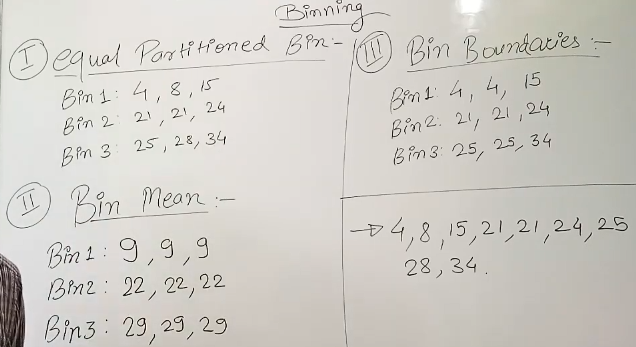 Binning
I equal Partitioned Bin:-
Bin 1: 4, 8, 15
Bin 2: 21, 21, 24
Bin 3: 25, 28, 34
II Bin Mean :-
Bin 1: 9, 9, 9
Bin2: 22, 22, 22
Bin3: 29, 29, 29
III Bin Boundaries :-
Bin 1: 4, 4, 15
Bin2: 21, 21, 24
Bin3: 25, 25, 34
→ 4, 8, 15, 21, 21, 24, 25
28, 34.